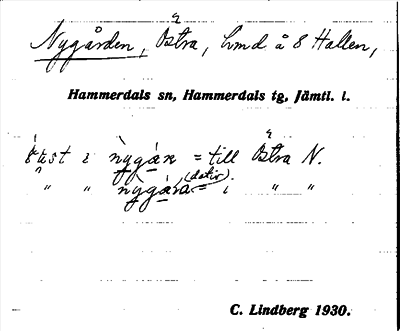 Nygården, Östra, hmd å 8 Hallen,
Hammerdals sn, Hammerdals tg, Jämtl. l.
i nỳgán = till Östra N.
" " nỳgára (dativ). = i " "
C. Lindberg 1930.